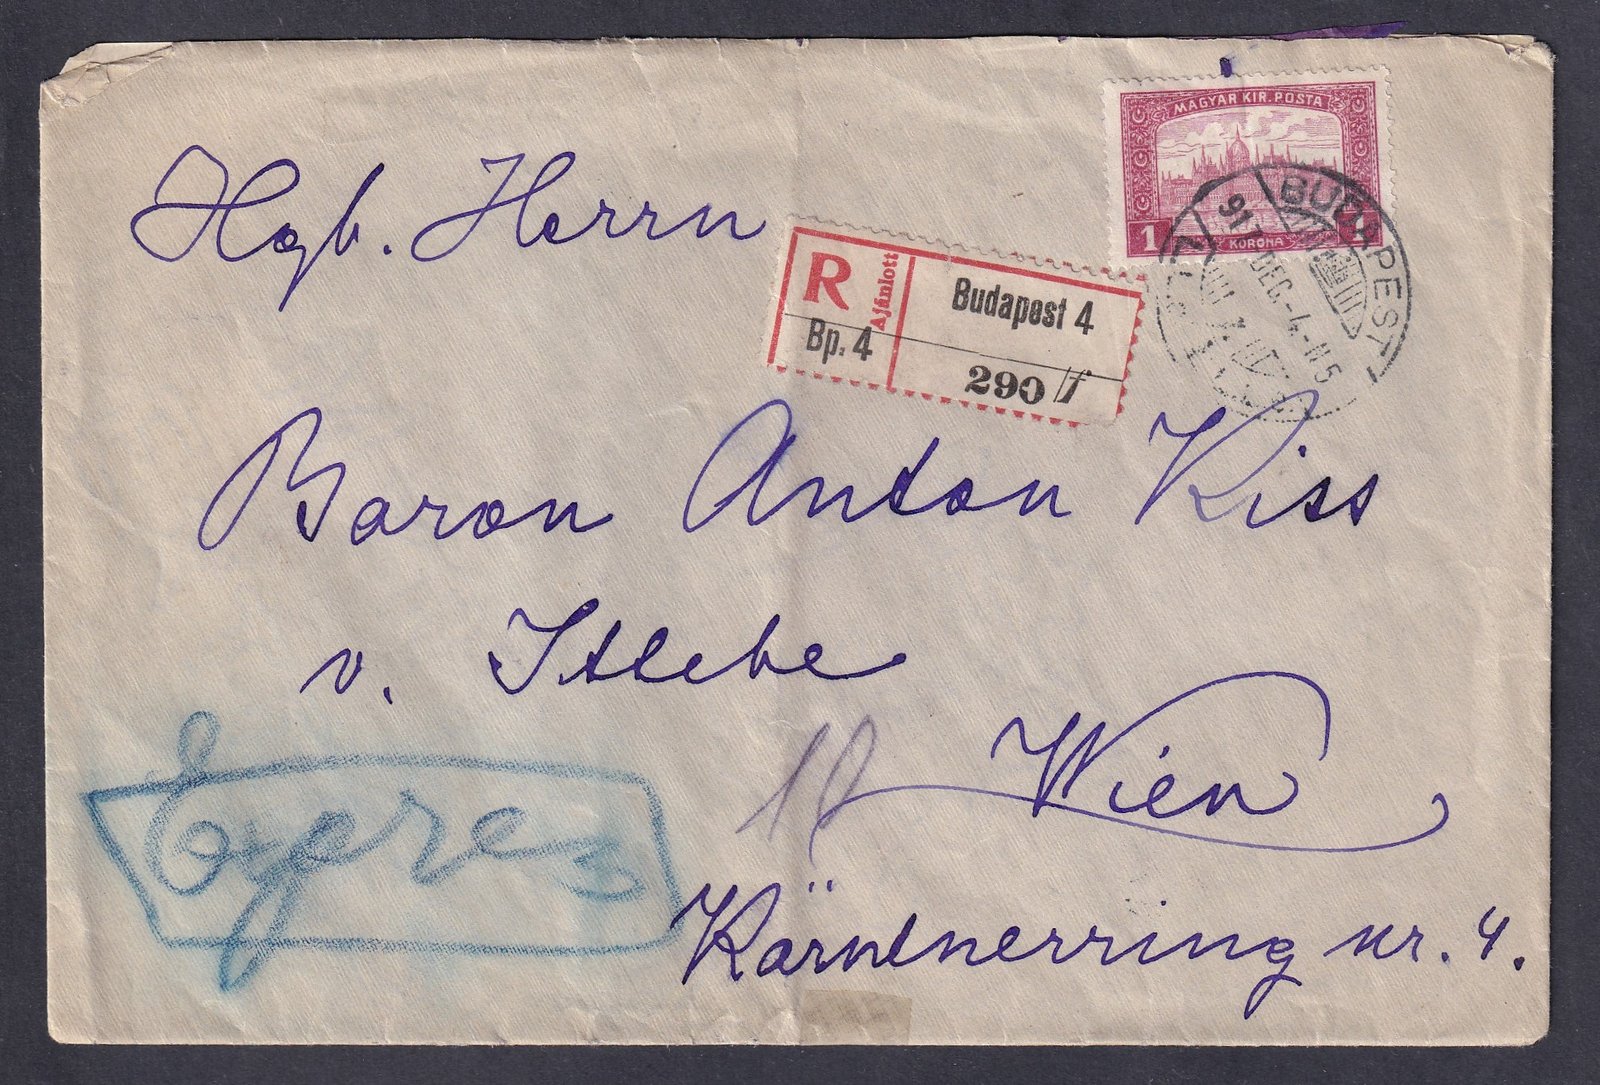 MAGYAR KIR. POSTA
1 KORONA 1
BUDAPEST
917 DEC.-4.-N5
Hgb. Herrn
R Ajánlott
Budapest 4
Bp. 4
290
Baron Anton Kiss
v. Ittebe
Wien
Expres
Kärntnerring nr. 4.